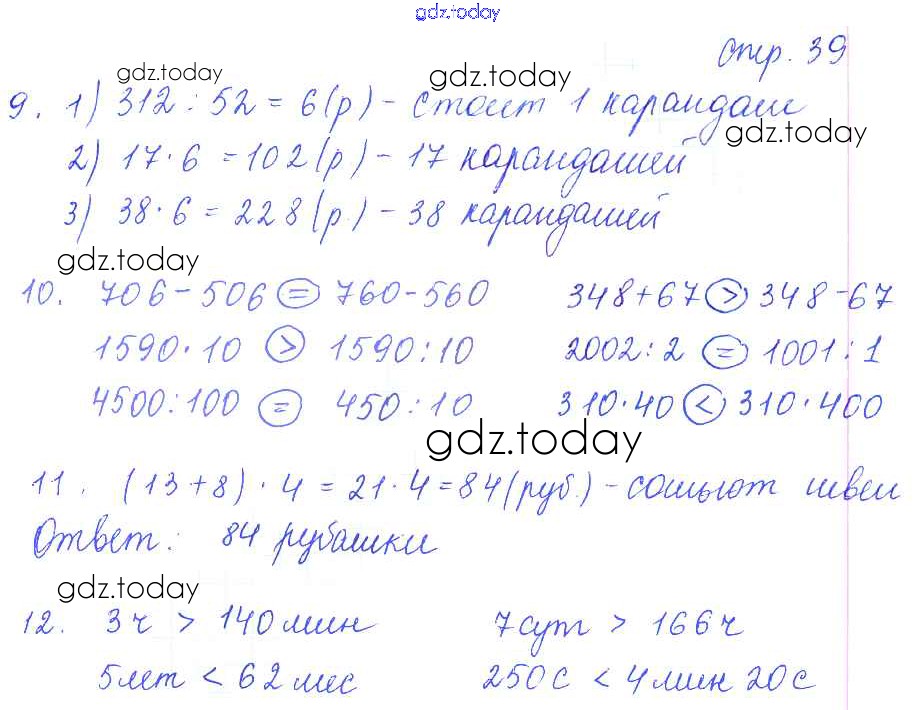 gdz.today
стр. 39
gdz.today gdz.today
9. 1) 312 : 52 = 6(р) - стоит 1 карандаш
gdz.today
2) 17 · 6 = 102(р) - 17 карандашей
3) 38 · 6 = 228(р) - 38 карандашей
gdz.today
10. 706 - 506 = 760 - 560 348 + 67 > 348 - 67
1590 · 10 > 1590 : 10 2002 : 2 = 1001 : 1
4500 : 100 = 450 : 10 310 · 40 < 310 · 400
gdz.today
11. (13 + 8) · 4 = 21 · 4 = 84 (руб.) - сошьют швеи
Ответ: 84 рубашки
gdz.today
12. 3ч > 140 мин 7сут > 166ч
5лет < 62 мес 250с < 4 мин 20с